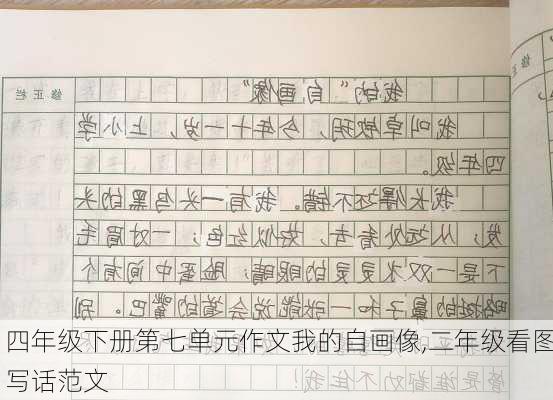 修正栏
我的“自画像”
我叫卓敏玥，今年十一岁，上小学
四年级。
我长得还不错。我有一头乌黑的头
发，从远处看去，似红色；一对眉毛
下是一双水灵灵的眼睛；脸蛋中间有个
略挺的鼻子和一张能说会道的嘴巴。别
管是谁都劝不住我！
四年级下册第七单元作文我的自画像,二年级看图
写话范文